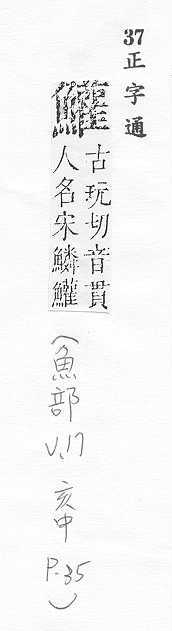 37正字通
鱹
古玩切音貫
人名宋鱗鱹
(魚部
V.17 亥中
P.35)